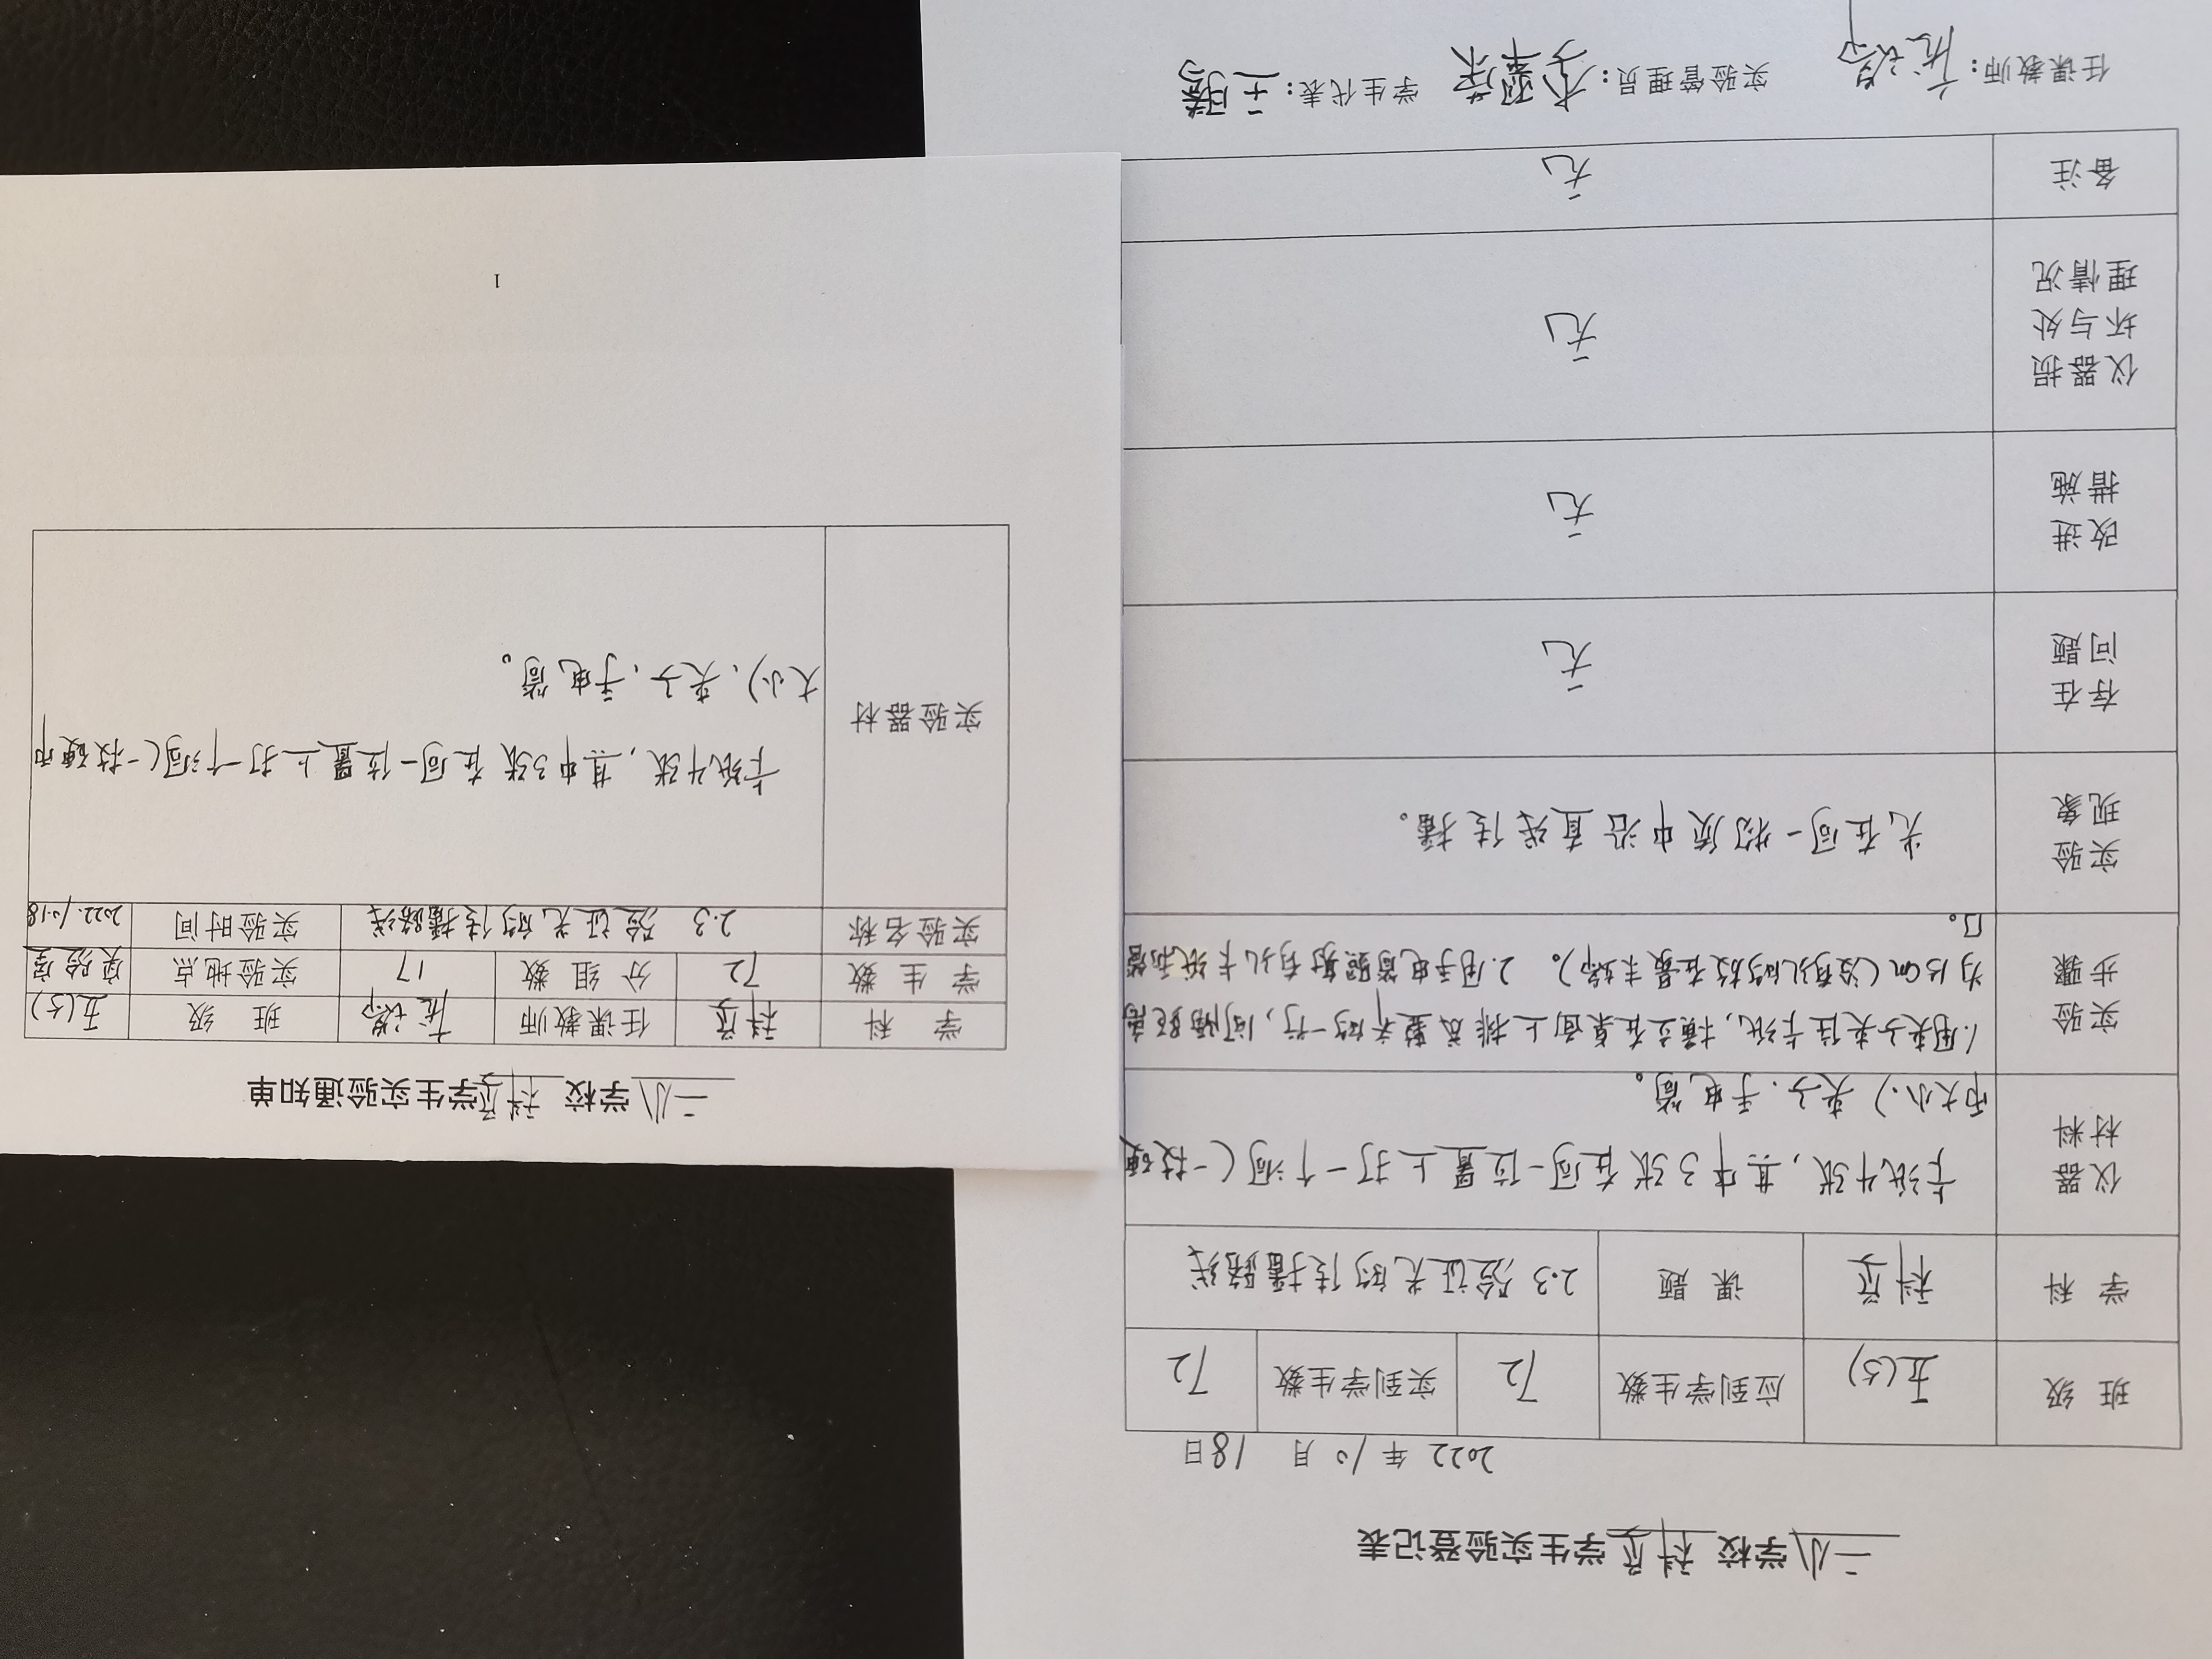 二小学校 科学 学生实验登记表
2022 年 10 月 18日
班 级 五(5) 应到学生数 72 实到学生数 72
学 科 科学 课 题 2.3 验证光的传播路线
仪器
材料
卡纸4张,其中3张在同一位置上打一个洞(一枚硬
币大小.) 夹子.手电筒。
实验
步骤
1.用夹子夹住卡纸,横立在桌面上排成整齐的一行,间隔距离
为15cm(没有孔的放在最末端)。 2.用手电筒照射有孔卡纸和
口。
实验
现象
光在同一物质中沿直线传播。
存在
问题
无
改进
措施
无
仪器损
坏与处
理情况
无
备注
无
任课教师: 实验管理员: 学生代表:
二小学校 科学学生实验通知单
学 科 科学 任课教师 班 级 五(5)
学 生 数 72 分 组 数 17 实验地点 实验室
实验名称 2.3 验证光的传播路线 实验时间 2022.10.18
实验器材
卡纸4张,其中3张在同一位置上打一个洞(一枚硬币
大小)、夹子,手电筒。
1